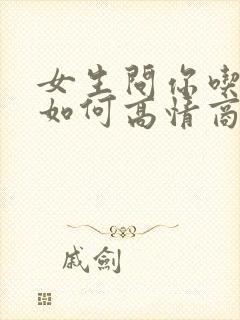 女生問你喫
如何高情商
戚劍